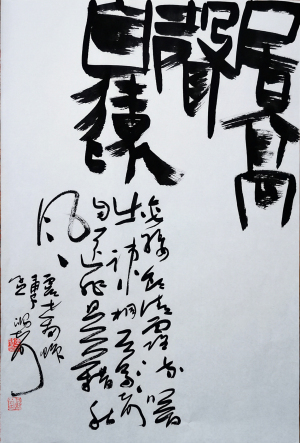 居高
聲
自遠
垂緌飲清露流響
出疏桐居高聲
自遠非是藉秋
風
虞世南蟬